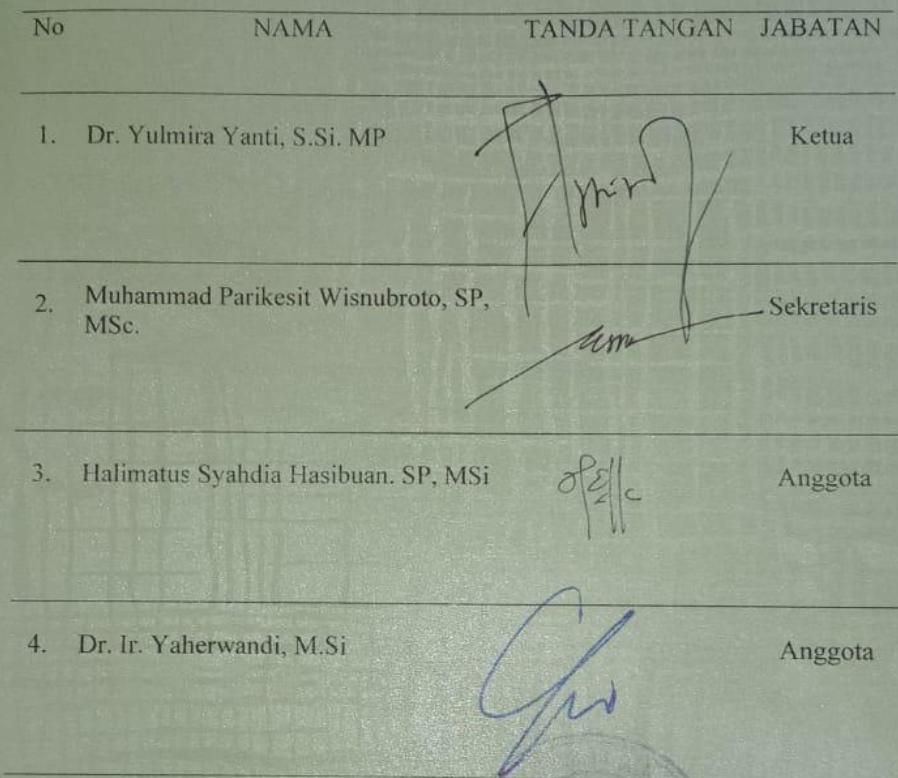 No NAMA TANDA TANGAN JABATAN
1. Dr. Yulmira Yanti, S.Si. MP Ketua
2. Muhammad Parikesit Wisnubroto, SP, Sekretaris
MSc.
3. Halimatus Syahdia Hasibuan. SP, MSi Anggota
4. Dr. Ir. Yaherwandi, M.Si Anggota